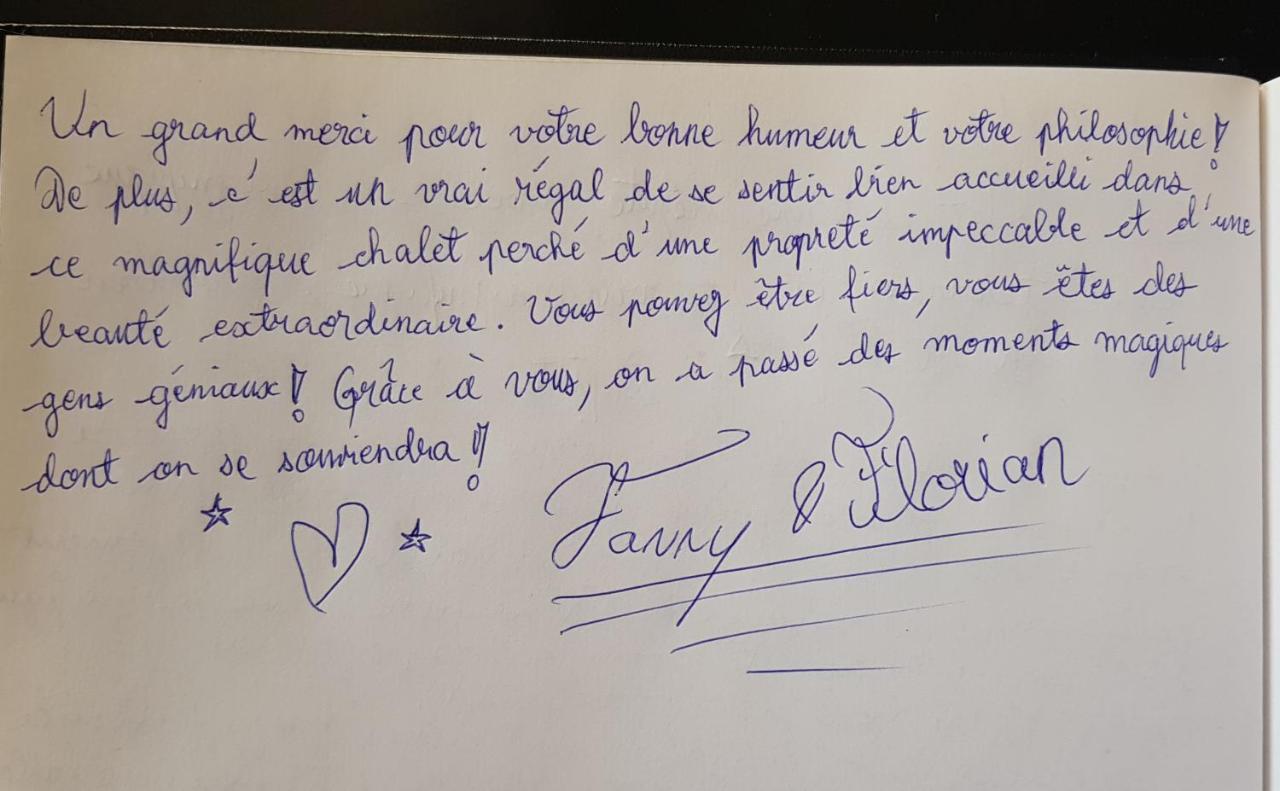 Un grand merci pour votre bonne humeur et votre philosophie !
De plus, c'est un vrai régal de se sentir bien accueilli dans
ce magnifique chalet perché d'une propreté impeccable et d'une
beauté extraordinaire. Vous pouvez être fiers, vous êtes des
gens géniaux ! Grâce à vous, on a passé des moments magiques
dont on se souviendra !
Fanny & Florian